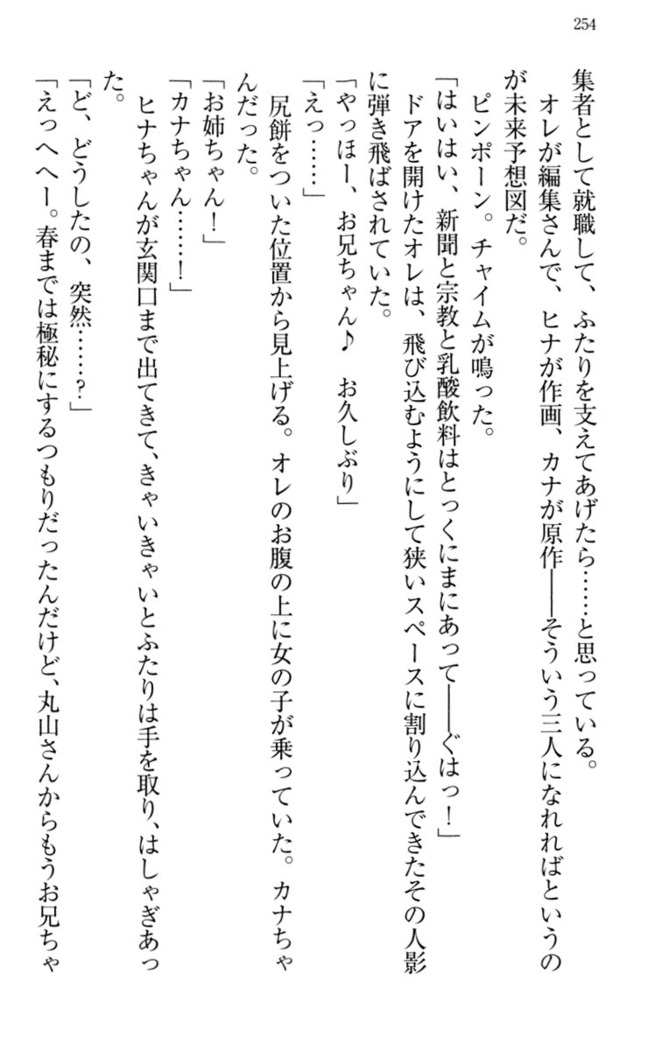 254
集者として就職して、ふたりを支えてあげたら……と思っている。
オレが編集さんで、ヒナが作画、カナが原作――そういう三人になれればというの
が未来予想図だ。
ピンポーン。チャイムが鳴った。
「はいはい、新聞と宗教と乳酸飲料はとっくにまにあって――ぐはっ！」
ドアを開けたオレは、飛び込むようにして狭いスペースに割り込んできたその人影
に弾き飛ばされていた。
「やっほー、お兄ちゃん♪　お久しぶり」
「えっ……」
尻餅をついた位置から見上げる。オレのお腹の上に女の子が乗っていた。カナちゃ
んだった。
「お姉ちゃん！」
「カナちゃん……！」
ヒナちゃんが玄関口まで出てきて、きゃいきゃいとふたりは手を取り、はしゃぎあっ
た。
「ど、どうしたの、突然……？」
「えっへへー。春までは極秘にするつもりだったんだけど、丸山さんからもうお兄ちゃ